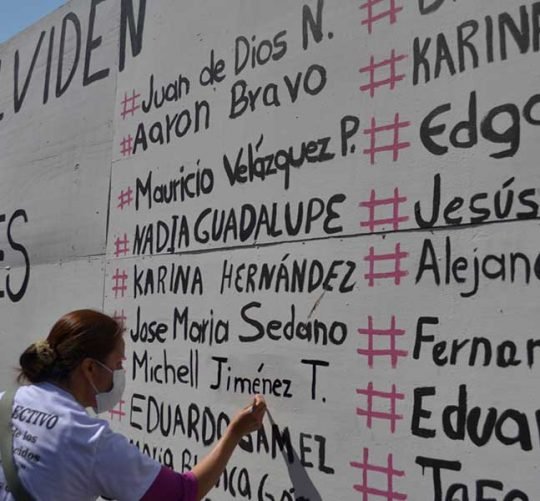 LVIDEN
#Juan de Dios N.
#Aaron Bravo
#Mauricio Velázquez P.
#NADIA GUADALUPE
#KARINA HERNÁNDEZ
#Jose Maria Sedano
Michell Jiménez T.
#EDUARDO GAMEZ
#
#KARINA
#Edga
#Jesús
#Alejan
#Fernan
#Eduar
#
ES
ECTIVO